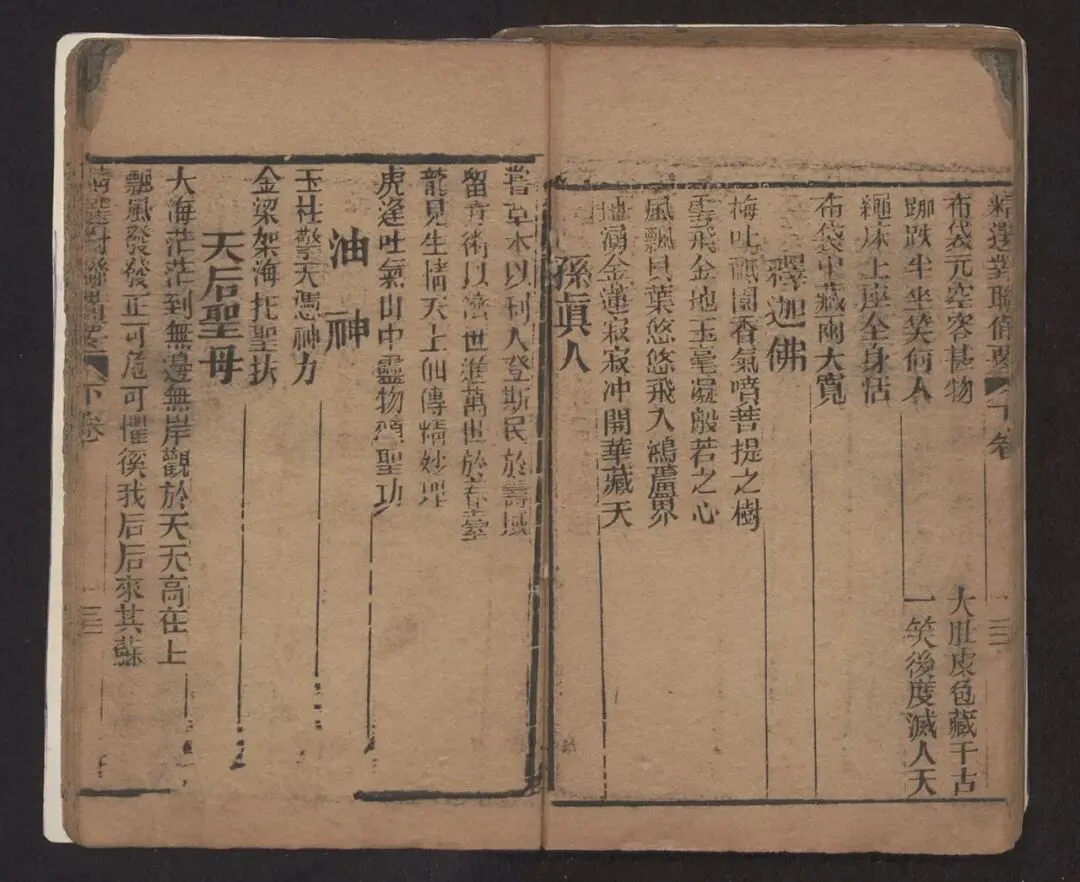 精選對聯備要 下卷 三
布袋元空容甚物 大肚虛包藏千古
跏趺半坐笑何人 一笑後度滅人天
繩床上座全身活
布袋中藏兩大寬
釋迦佛
梅吐祇園香氣噴菩提之樹
雲飛金地玉毫凝般若之心
風飄貝葉悠悠飛入鴻蘆界
地涵金蓮寂寂冲開華藏天
孫眞人
嘗草木以利人登斯民於壽域
留青術以濟世進萬世於春臺
龍見生情天上仙傳精妙理
虎逢吐氣山中靈物頌聖功
油神
玉柱擎天憑神力
金梁架海托聖扶
天后聖母
大海茫茫到無邊無岸觀於天天高在上
飄風發發正可危可懼徯我后后來其蘇
精選對聯備要 下卷 三